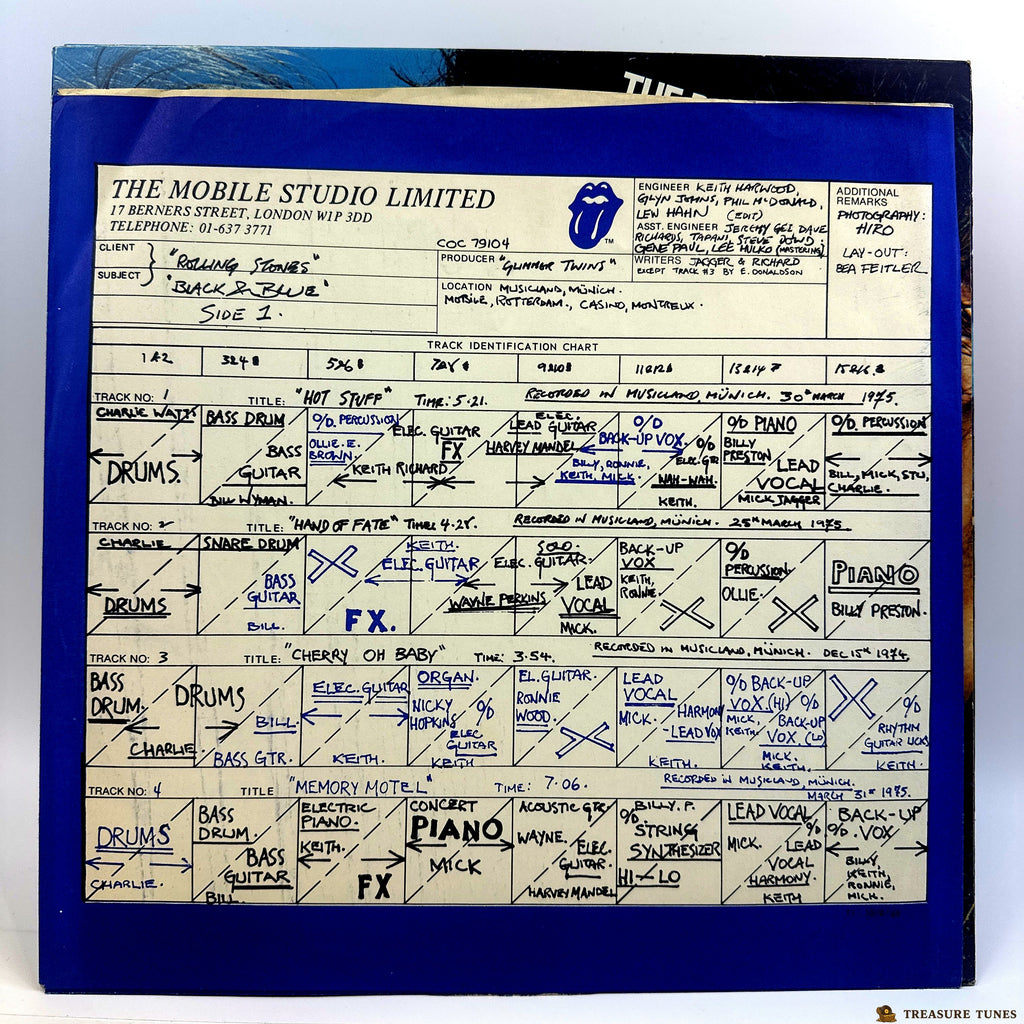 THE MOBILE STUDIO LIMITED
17 BERNERS STREET, LONDON W1P 3DD
TELEPHONE: 01-637 3771
CLIENT
SUBJECT
"ROLLING STONES"
"BLACK & BLUE"
SIDE 1.
COC 79104
PRODUCER "GLIMMER TWINS"
LOCATION MUSICLAND, MÜNICH.
MOBILE, ROTTERDAM., CASINO, MONTREUX.
TM
ENGINEER KEITH HARWOOD,
GLYN JOHNS, PHIL McDONALD,
LEW HAHN (EDIT)
ASST. ENGINEER JEREMY GEE, DAVE
RICHARDS, TAPANI, STEVE DOWD
GENE PAUL, LEE HULKO (MASTERING)
WRITERS JAGGER & RICHARD
EXCEPT TRACK #3 BY E. DONALDSON
ADDITIONAL
REMARKS
PHOTOGRAPHY:
HIRO
LAY-OUT:
BEA FEITLER
TRACK IDENTIFICATION CHART
1&2 3&4 5&6 7&8 9&10 11&12 13&14 15&16
TRACK NO: 1 TITLE: "HOT STUFF" TIME: 5.21. RECORDED IN MUSICLAND, MÜNICH. 30th MARCH 1975.
CHARLIE WATTS
DRUMS.
BASS DRUM
BASS
GUITAR
BILL WYMAN.
O/D. PERCUSSION
OLLIE. E.
BROWN.
ELEC. GUITAR
FX
KEITH RICHARD
ELEC.
LEAD GUITAR
HARVEY MANDEL
O/D
BACK-UP VOX.
BILLY, RONNIE,
KEITH, MICK.
O/D
ELEC. GTR
WAH-WAH.
KEITH.
O/D PIANO
BILLY
PRESTON
LEAD
VOCAL
MICK JAGGER
O/D. PERCUSSION
BILL, MICK, STU,
CHARLIE.
TRACK NO: 2 TITLE: "HAND OF FATE" TIME: 4.28. RECORDED IN MUSICLAND, MÜNICH. 25th MARCH 1975
CHARLIE
DRUMS
SNARE DRUM
BASS
GUITAR
BILL.
FX.
KEITH.
ELEC. GUITAR
SOLO.
ELEC. GUITAR.
WAYNE PERKINS
LEAD
VOCAL
MICK.
BACK-UP
VOX
KEITH,
RONNIE.
O/D
PERCUSSION
OLLIE.
PIANO
BILLY PRESTON.
TRACK NO: 3 TITLE: "CHERRY OH BABY" TIME: 3.54. RECORDED IN MUSICLAND, MÜNICH. DEC 15th 1974.
BASS
DRUM.
DRUMS
CHARLIE.
BILL.
BASS GTR.
ELEC. GUITAR
KEITH.
ORGAN.
NICKY
HOPKINS
O/D
ELEC
GUITAR
KEITH
EL. GUITAR.
RONNIE
WOOD.
LEAD
VOCAL
MICK.
HARMONY
-LEAD VOX
KEITH.
O/D BACK-UP
VOX (HI)
MICK,
KEITH.
O/D
BACK-UP
VOX. (LO)
MICK.
KEITH.
O/D
RHYTHM
GUITAR LICKS
KEITH.
TRACK NO: 4 TITLE "MEMORY MOTEL" TIME: 7.06. RECORDED IN MUSICLAND, MÜNICH.
MARCH 31st 1975.
DRUMS
CHARLIE.
BASS
DRUM.
BASS
GUITAR
BILL.
ELECTRIC
PIANO.
KEITH.
FX
CONCERT
PIANO
MICK
ACOUSTIC GTR.
WAYNE.
ELEC.
GUITAR.
HARVEY MANDEL
BILLY. P.
O/D
STRING
SYNTHESIZER
HI-LO
LEAD VOCAL
MICK.
O/D
LEAD
VOCAL
HARMONY.
KEITH
BACK-UP
O/D. VOX
BILLY,
KEITH,
RONNIE,
MICK.
TREASURE TUNES